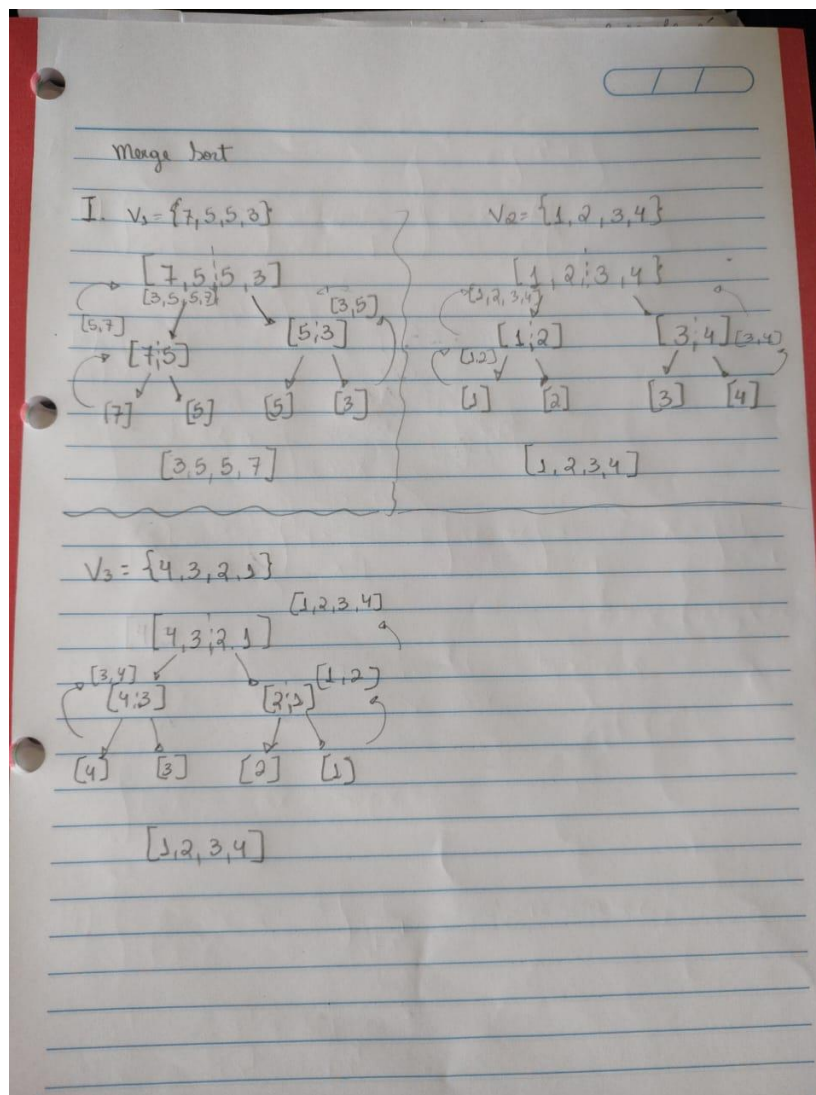 Merge Sort
I. V1 = {7,5,5,3}
[7,5;5,3]
[3,5,5,7]
[3,5]
[5,7]
[5;3]
[7;5]
[7] [5] [5] [3]
[3,5,5,7]
V2= {1,2,3,4}
[1,2;3,4}
[1,2,3,4]
[1;2] [3;4] [3,4]
[1,2]
[1] [2] [3] [4]
[1,2,3,4]
V3 = {4,3,2,1}
[1,2,3,4]
[4,3;2,1]
[3,4] [1,2]
[4;3] [2;1]
[4] [3] [2] [1]
[1,2,3,4]